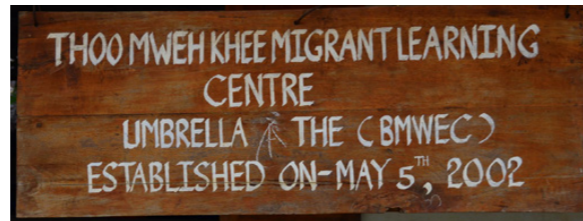 THOO MWEH KHEE MIGRANT LEARNING
CENTRE
UMBRELLA THE (BMWEC)
ESTABLISHED ON-MAY 5TH, 2002